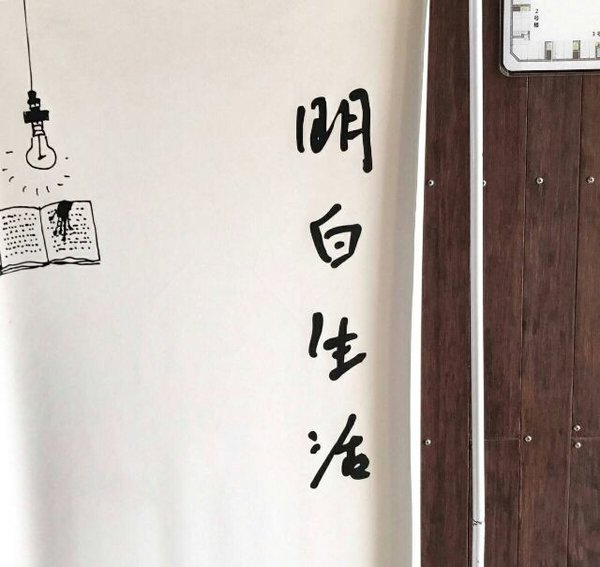 明白生活
2号楼